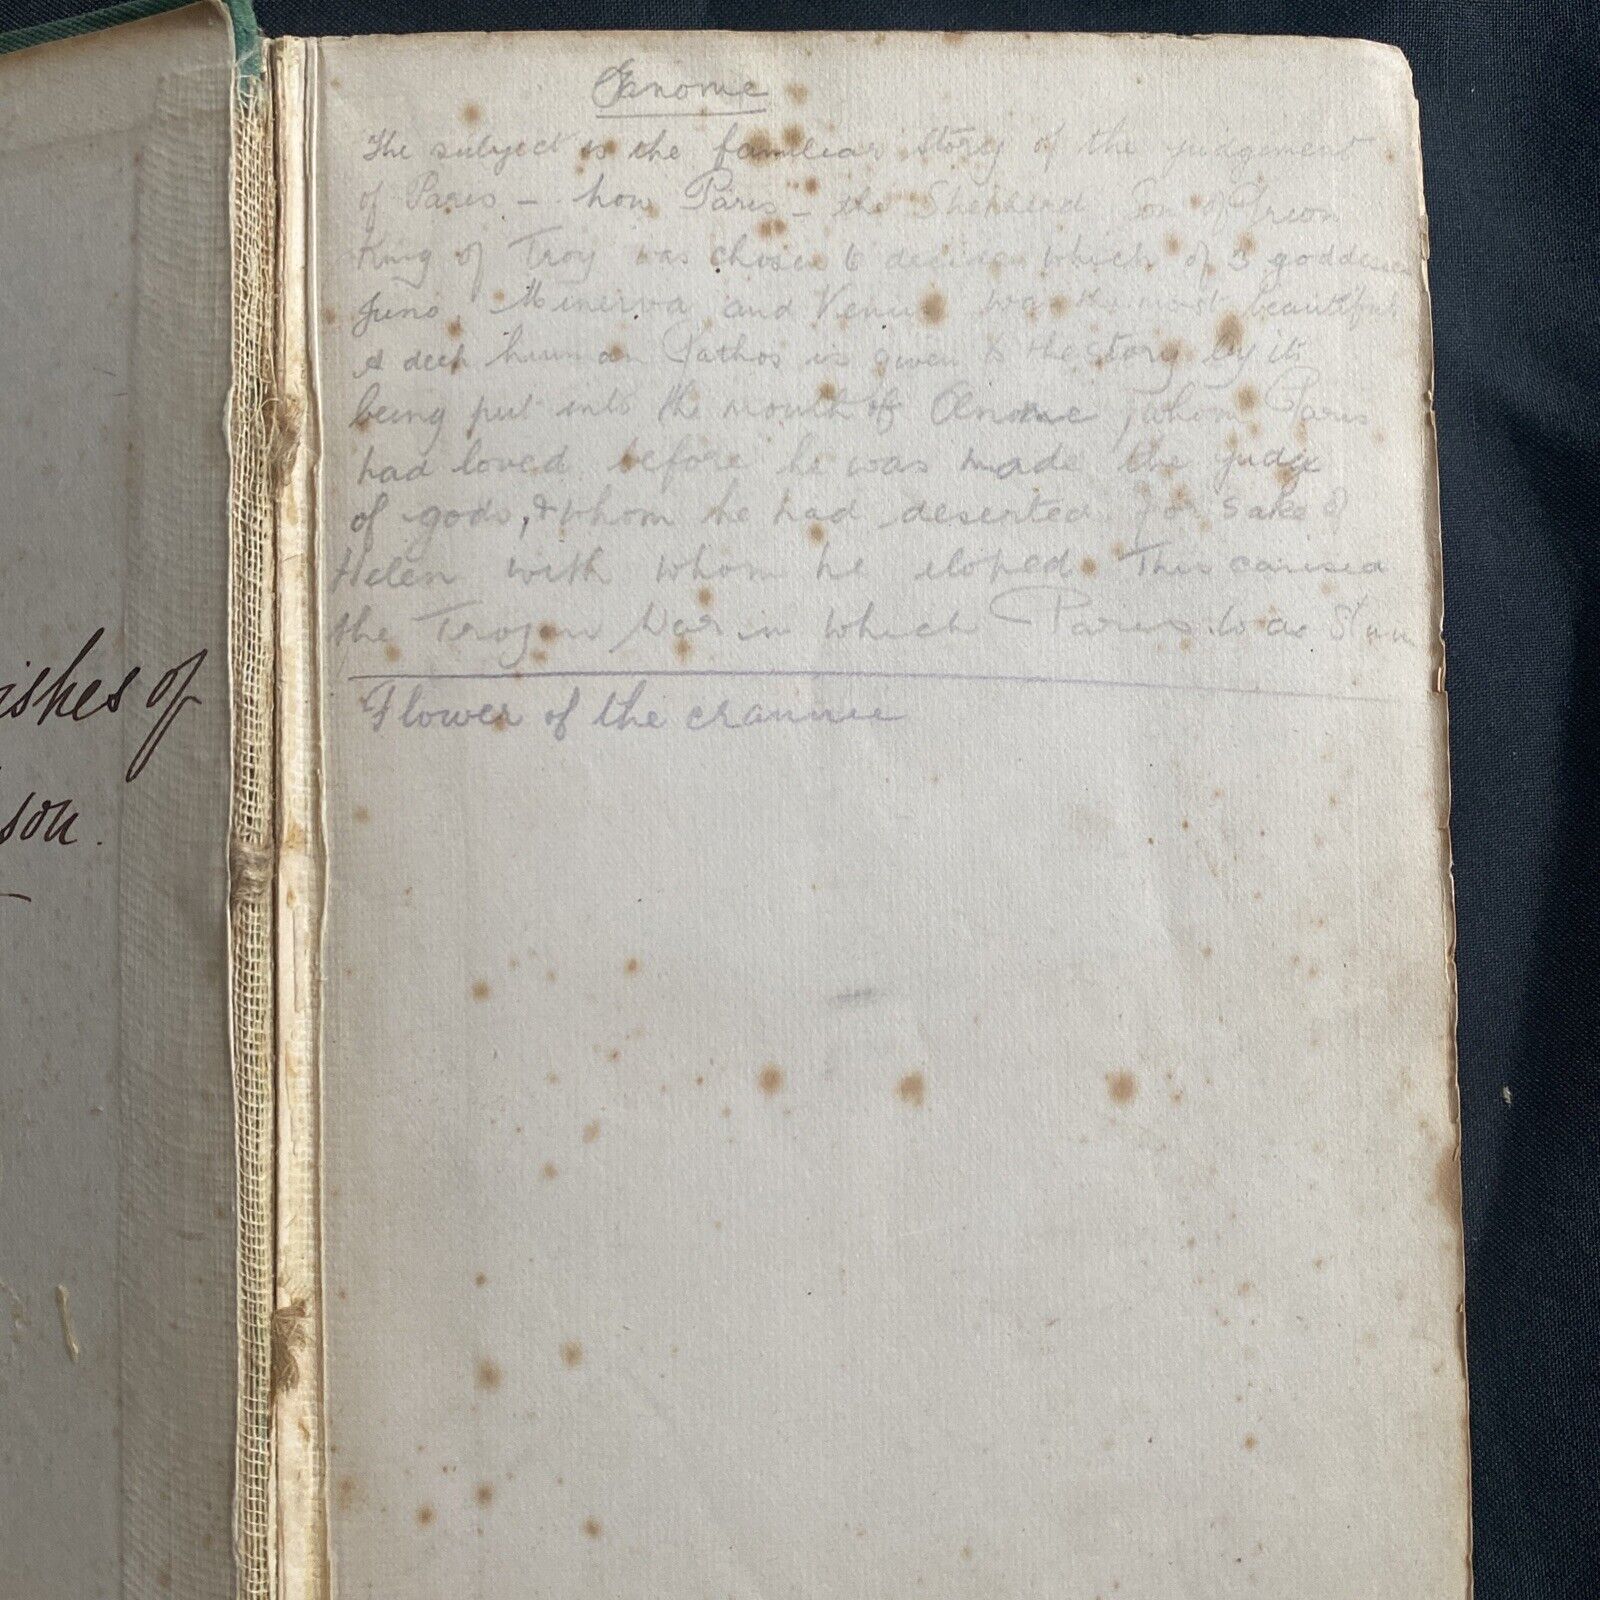 Œnome
The subject is the familiar story of the judgement
of Paris – how Paris – the Shepherd Son of
King of Troy was chosen to decide which of 3 goddesses
Juno, Minerva and Venus was the most beautiful
A deep human Pathos is given to the story by its
being put into the mouth of Œnone, whom Paris
had loved before he was made the judge
of gods, & whom he had deserted for sake of
Helen with whom he eloped. This caused
the Trojan War in which Paris was slain
Flower of the crannie
ishes of
son.